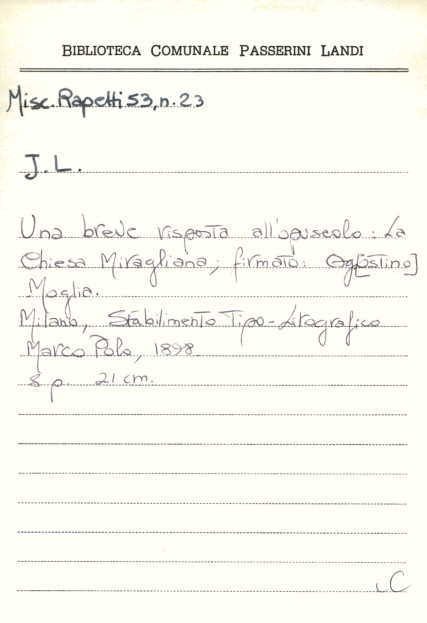 BIBLIOTECA COMUNALE PASSERINI LANDI
Misc. Rapetti 53, n. 23
J. L.
Una breve risposta all'opuscolo: La
Chiesa Miragliana; firmato: Ag[ostino]
Moglia.
Milano, Stabilimento Tipo-Litografico
Marco Polo, 1898.
8 p. 21 cm.